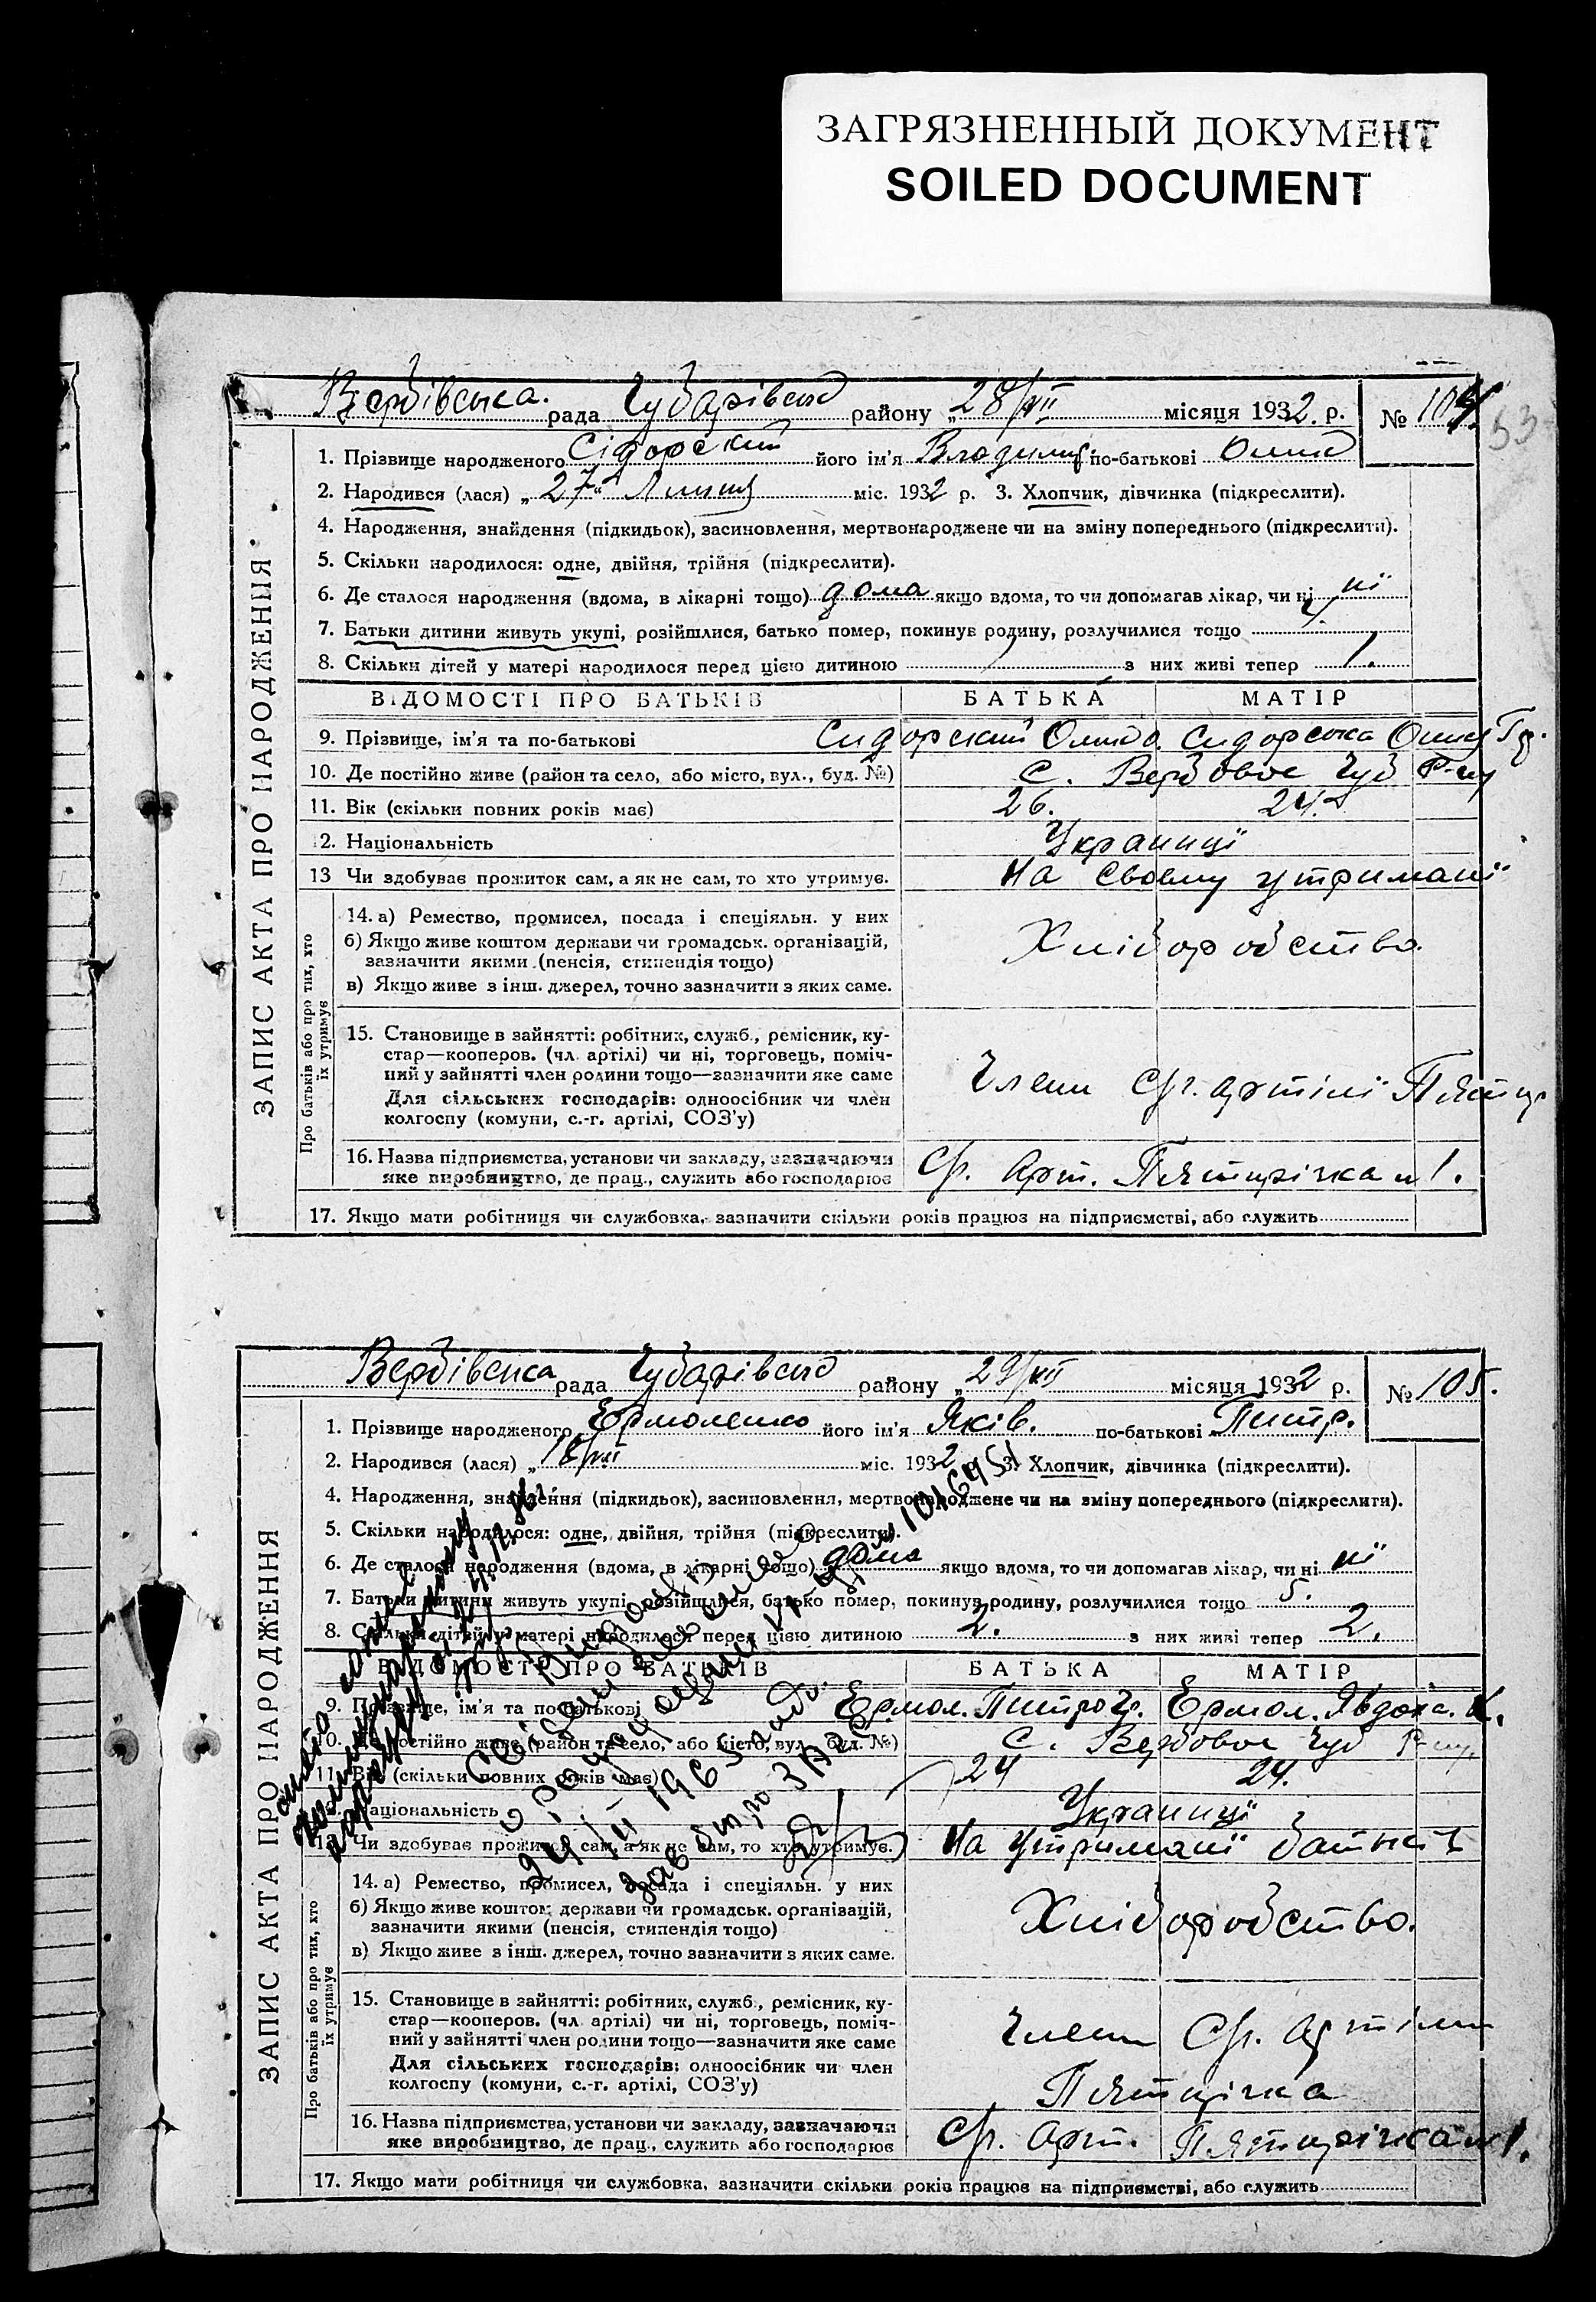 ЗАГРЯЗНЕННЫЙ ДОКУМЕНТ
SOILED DOCUMENT
53
Вербівська. рада Чубарівськ району „ 28/VII місяця 1932 р. № 104.
ЗАПИС АКТА ПРО НАРОДЖЕННЯ
1. Прізвище народженого Сідорский його ім'я Владимир. по-батькові
2. Народився (лася) „ 27 “ Липня міс. 1932 р. 3. Хлопчик, дівчинка (підкреслити).
4. Народження, знайдення (підкидьок), засиновлення, мертвонароджене чи на зміну попереднього (підкреслити).
5. Скільки народилося: одне, двійня, трійня (підкреслити).
6. Де сталося народження (вдома, в лікарні тощо) дома якщо вдома, то чи допомагав лікар, чи ні ні
7. Батьки дитини живуть укупі, розійшлися, батько помер, покинув родину, розлучилися тощо
8. Скільки дітей у матері народилося перед цією дитиною 1 з них живі тепер 1.
ВІДОМОСТІ ПРО БАТЬКІВ БАТЬКА МАТІР
9. Прізвище, ім'я та по-батькові Сидорский Сидорська
10. Де постійно живе (район та село, або місто, вул., буд. №) С. Вербовое Чуб Р-ну
11. Вік (скільки повних років має) 26. 24.
12. Національність Украинці
13 Чи здобуває прожиток сам, а як не сам, то хто утримує. На своему утримані
Про батьків або про тих, хто їх утримує
14. а) Ремество, промисел, посада і спеціяльн. у них
б) Якщо живе коштом держави чи громадськ. організацій,
зазначити якими (пенсія, стипендія тощо)
в) Якщо живе з інш. джерел, точно зазначити з яких саме.
Хліборобство.
15. Становище в зайнятті: робітник, служб., ремісник, ку-
стар—кооперов. (чл. артілі) чи ні, торговець, поміч-
ний у зайнятті член родини тощо—зазначити яке саме
Для сільських господарів: одноосібник чи член
колгоспу (комуни, с.-г. артілі, СОЗ'у)
Члени Сг. артілі
16. Назва підприємства, установи чи закладу, зазначаючи
яке виробництво, де прац., служить або господарює
Сг. Арт. Пятирічка № 1.
17. Якщо мати робітниця чи службовка, зазначити скільки років працює на підприємстві, або служить
Вербівська рада Чубарівськ району „ 29/VII місяця 1932 р. № 105.
ЗАПИС АКТА ПРО НАРОДЖЕННЯ
1. Прізвище народженого Ермоленко його ім'я Яків. по-батькові Питр.
2. Народився (лася) „ 18/VII міс. 1932 р. 3. Хлопчик, дівчинка (підкреслити).
4. Народження, знайдення (підкидьок), засиновлення, мертвонароджене чи на зміну попереднього (підкреслити).
5. Скільки народилося: одне, двійня, трійня (підкреслити).
6. Де сталося народження (вдома, в лікарні тощо) дома якщо вдома, то чи допомагав лікар, чи ні ні
7. Батьки дитини живуть укупі, розійшлися, батько помер, покинув родину, розлучилися тощо 5.
8. Скільки дітей у матері народилося перед цією дитиною 2. з них живі тепер 2.
ВІДОМОСТІ ПРО БАТЬКІВ БАТЬКА МАТІР
9. Прізвище, ім'я та по-батькові Ермол. Питро Гр. Ермол. Явдоха. К.
10. Де постійно живе (район та село, або місто, вул., буд. №) С. Вербовое Чуб Р-ну
11. Вік (скільки повних років має) 24 24.
12. Національність Украинці
13. Чи здобуває прожиток сам, а як не сам, то хто утримує. На утримані батьків
Про батьків або про тих, хто їх утримує
14. а) Ремество, промисел, посада і спеціяльн. у них
б) Якщо живе коштом держави чи громадськ. організацій,
зазначити якими (пенсія, стипендія тощо)
в) Якщо живе з інш. джерел, точно зазначити з яких саме.
Хліборобство.
15. Становище в зайнятті: робітник, служб., ремісник, ку-
стар—кооперов. (чл. артілі) чи ні, торговець, поміч-
ний у зайнятті член родини тощо—зазначити яке саме
Для сільських господарів: одноосібник чи член
колгоспу (комуни, с.-г. артілі, СОЗ'у)
Члени Сг. артіли
Пятирічка
16. Назва підприємства, установи чи закладу, зазначаючи
яке виробництво, де прац., служить або господарює
Сг. Арт. Пятирічка № 1.
17. Якщо мати робітниця чи службовка, зазначити скільки років працює на підприємстві, або служить
о рождении
24/II 1965 года.
Зав бюро ЗАГС